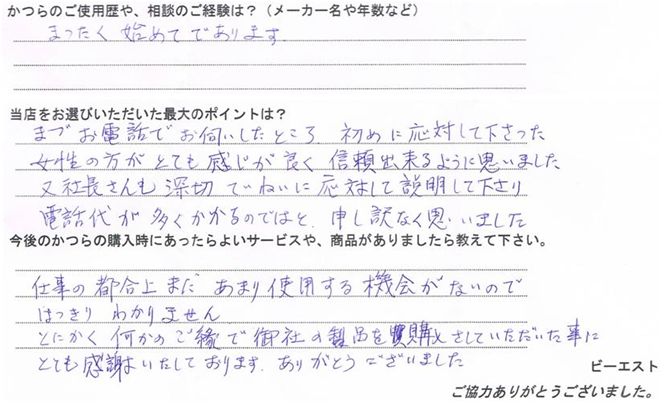 かつらのご使用歴や、相談のご経験は？（メーカー名や年数など）
まったく始めてであります
当店をお選びいただいた最大のポイントは？
まずお電話でお伺いしたところ、初めに応対して下さった
女性の方がとても感じが良く信頼出来るように思いました
又社長さんも深切ていねいに応対して説明して下さり
電話代が多くかかるのではと、申し訳なく思いました
今後のかつらの購入時にあったらよいサービスや、商品がありましたら教えて下さい。
仕事の都合上まだあまり使用する機会がないので
はっきりわかりません
とにかく何かのご縁で御社の製品を購入させていただいた事に
とても感謝いたしております。ありがとうございました
ビーエスト
ご協力ありがとうございました。